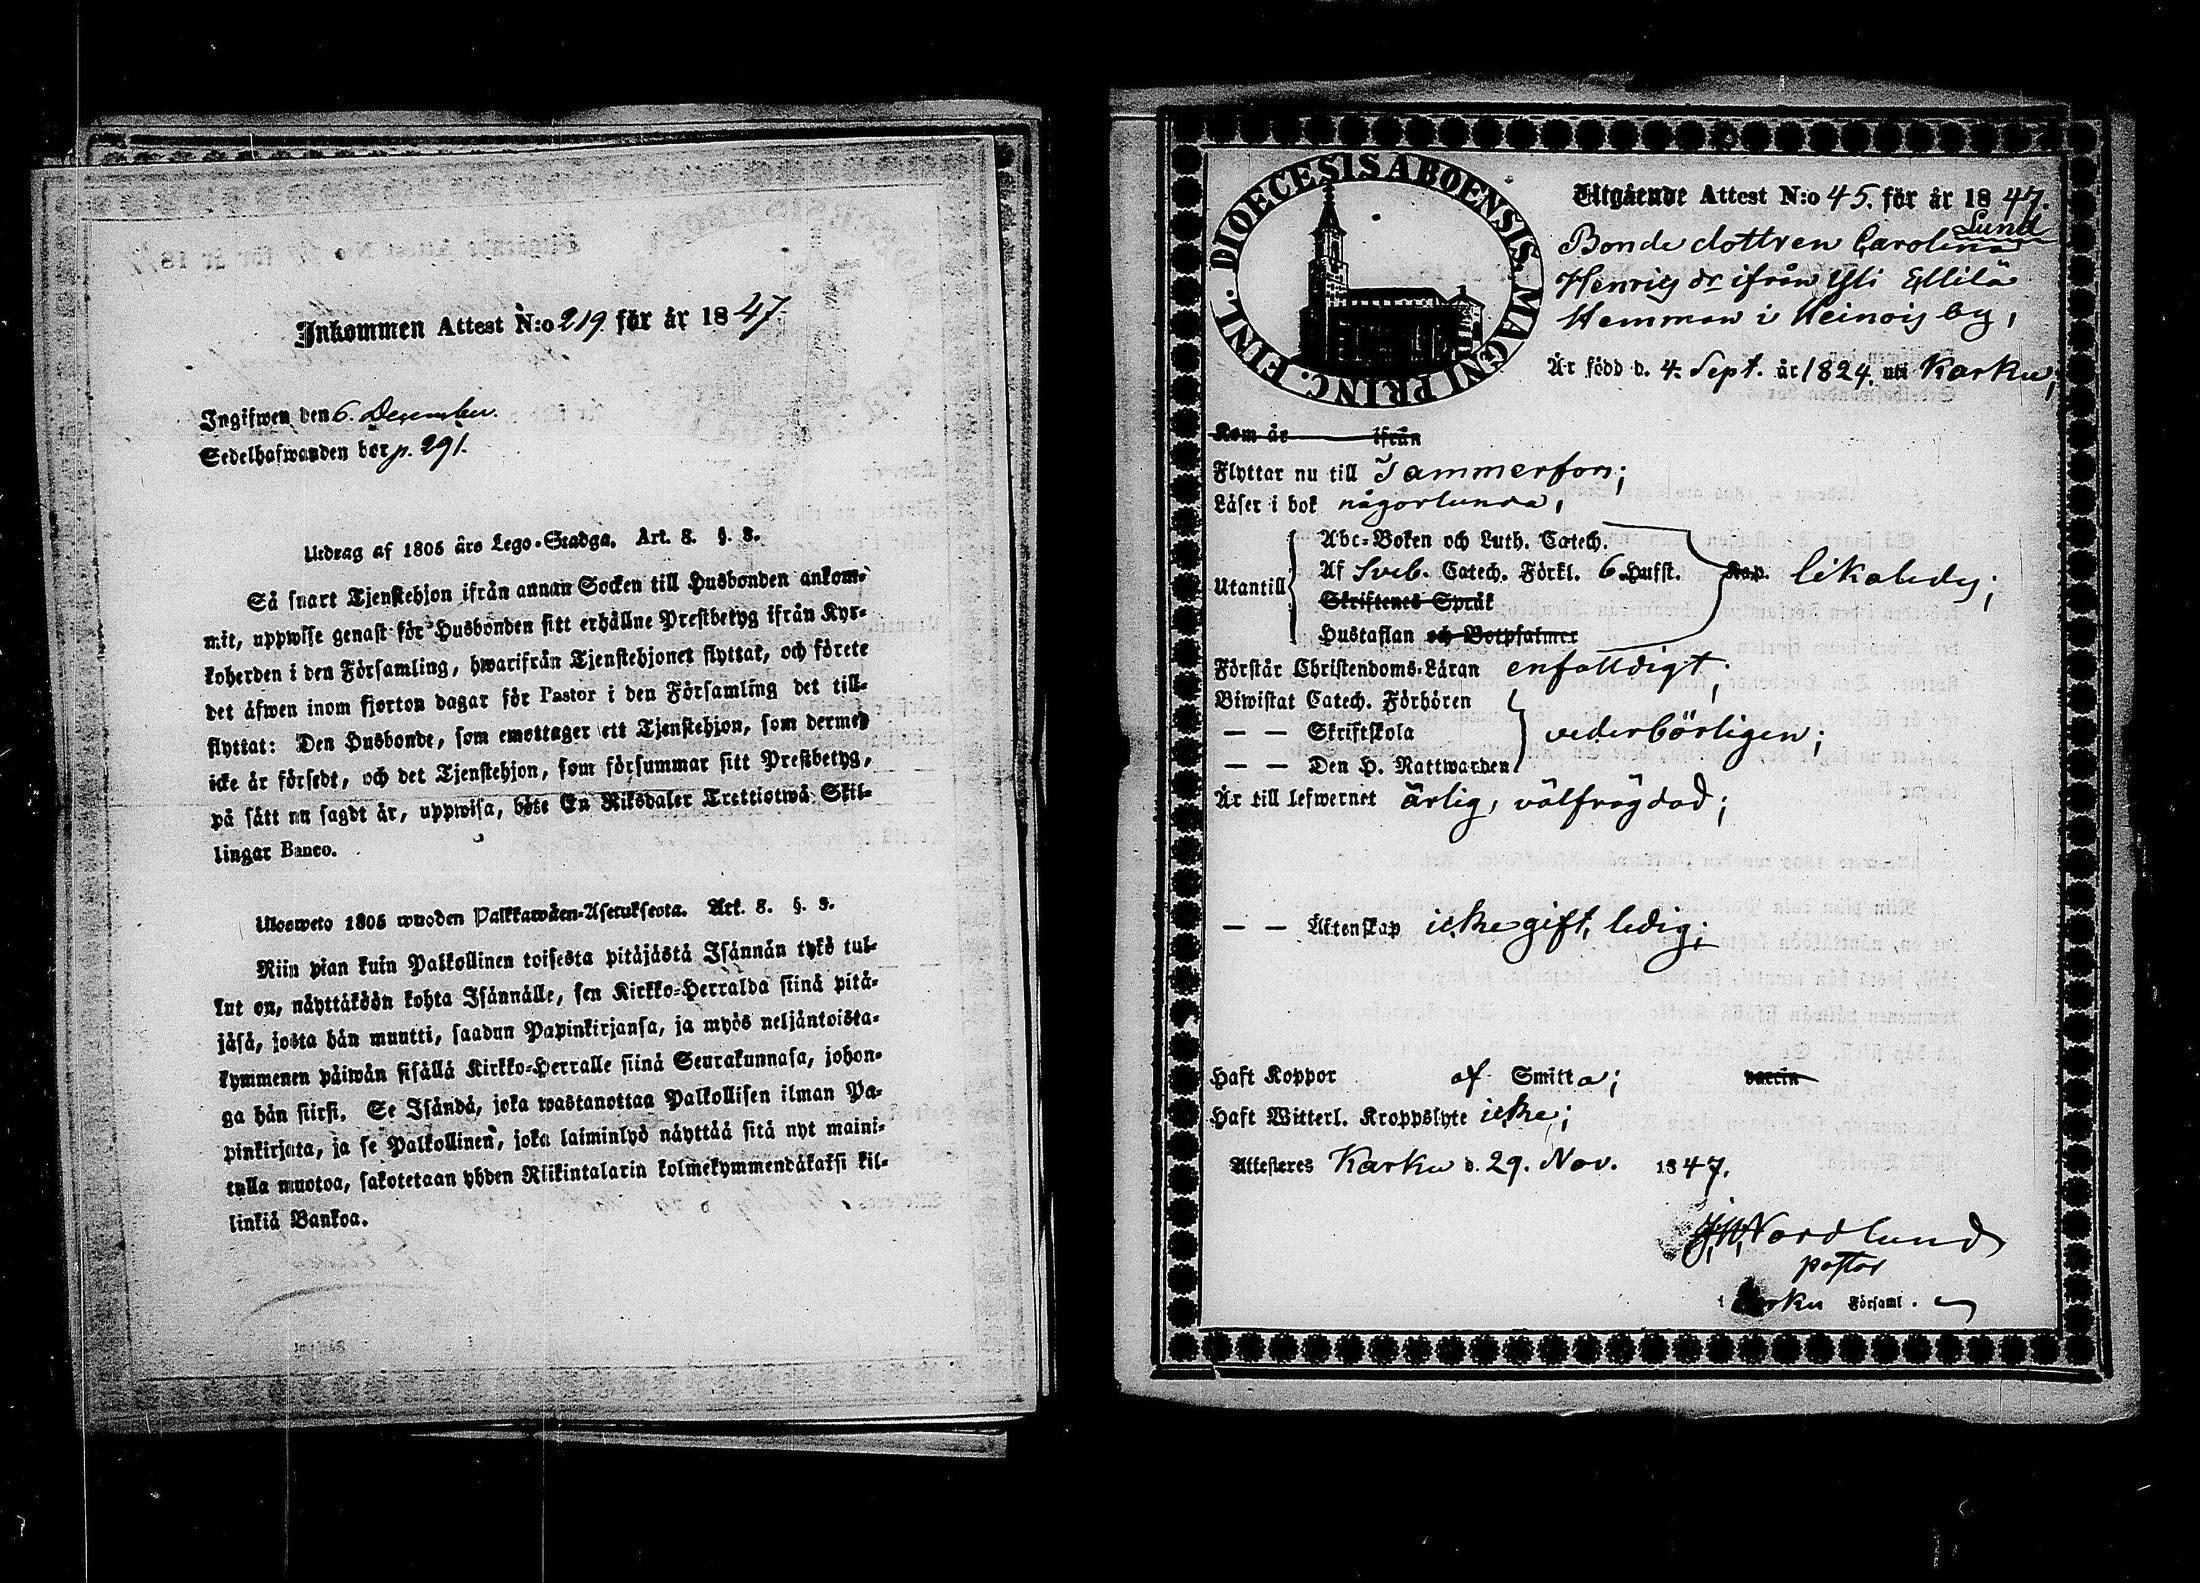 Inkommen Attest N:o 219 för år 1847.
Ingifwen den 6. December.
Sedelhafwanden bor p. 291.
Utdrag af 1805 års Lego-Stadga. Art. 8. §. 8.
Så snart Tjenstehjon ifrån annan Socken till Husbonden ankom-
mit, uppwise genast för Husbonden sitt erhållne Prestbetyg ifrån Kyr-
koherden i den Församling, hwarifrån Tjenstehjonet flyttat, och förete
det äfwen inom fjorton dagar för Pastor i den Församling det till-
flyttat: Den Husbonde, som emottager ett Tjenstehjon, som dermed
icke är försedt, och det Tjenstehjon, som försummar sitt Prestbetyg,
på sätt nu sagdt är, uppwisa, böte En Riksdaler Trettiotwå Skil-
lingar Banco.
Ulosweto 1805 wuoden Palkkawäen-Asetuksesta. Art. 8. §. 8.
Niin pian kuin Palkollinen toisesta pitäjästä Isännän tykö tul-
lut on, näyttäköön kohta Isännälle, sen Kirkko-Herralda siinä pitä-
jäsä, josta hän muutti, saadun Papinkirjansa, ja myös neljäntoista-
kymmenen päiwän sisällä Kirkko-Herralle siinä Seurakunnasa, johon-
ga hän siirsi. Se Isändä, joka wastanottaa Palkollisen ilman Pa-
pinkirjata, ja se Palkollinen, joka laiminlyö näyttää sitä nyt maini-
tulla muotoa, sakotetaan yhden Riikintalarin kolmekymmendäkaksi kil-
linkiä Bankoa.
DIOECESIS ABOENSIS. MAGNI PRINC. FINL.
Utgående Attest N:o 45. för år 1847.
Lund
Bonde dottren Carolina
Henrics dr ifrån Yli Ellilä
Hemman i Heinois by,
Är född d. 4. Sept. år 1824. uti Karku;
Kom år ifrån
Flyttar nu till Tammerfors;
Läser i bok någorlunda,
Utantill
Abc-Boken och Luth. Catech.
Af Sveb. Catech. Förkl. 6. Hufst. Kap. likaledes;
Skriftenes Språk
Hustaflan och Botpsalmer
Förstår Christendoms-Läran enfalldigt;
Biwistat Catech. Förhören
— — Skriftskola vederbörligen;
— — Den H. Nattwarden
Är till lefwernet ärlig, välfrägdad;
— — Äktenskap icke gift, ledig;
Haft Koppor af Smitta; vaccin
Haft Witterl. Kroppslyte icke;
Attesteres Karku d. 29. Nov. 1847.
Nordlund
pastor
i Karku Församl.